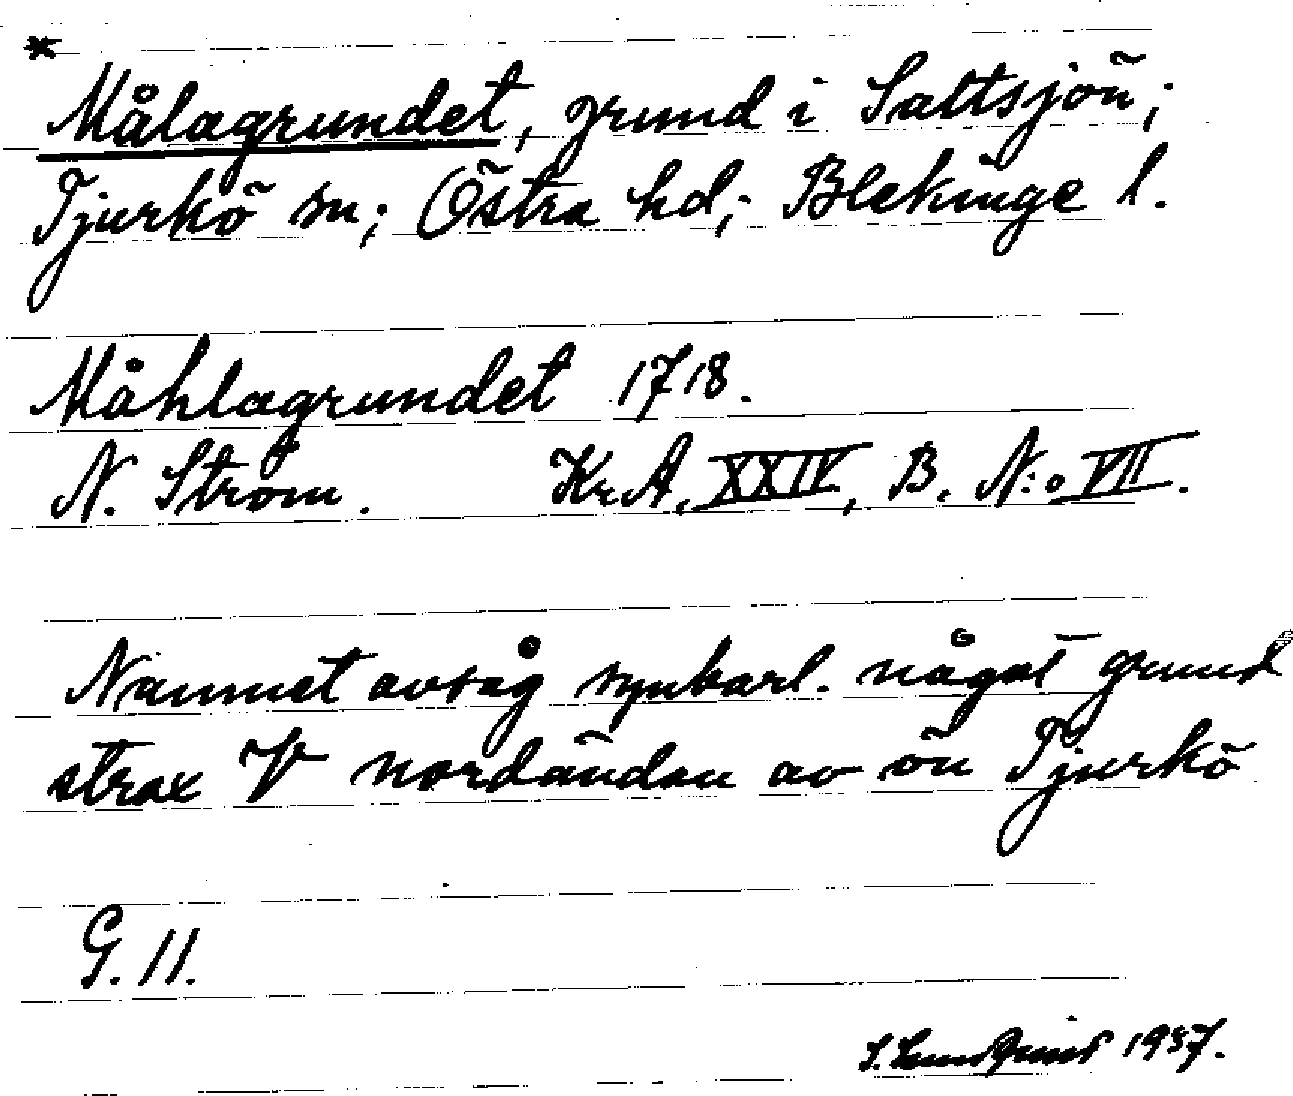 * Målagrundet, grund i Saltsjön;
Tjurkö sn; Östra hd; Blekinge l.
Måhlagrundet 1718.
N. Ström. Kr.A. XXIV, B. N:o VII.
Namnet avsåg synbarl. något grund
strax V nordändan av ön Tjurkö
G. 11.
S. Lundquist 1937.